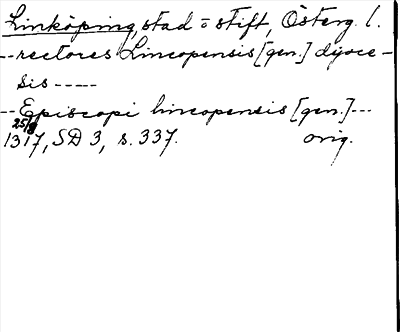 Linköping, stad o stift, Österg. l.
--rectores Lincopensis [gen.] dyoce-
sis -----
--Episcopi lincopensis [gen.]---
25/8
1317, SD 3, s. 337. orig.